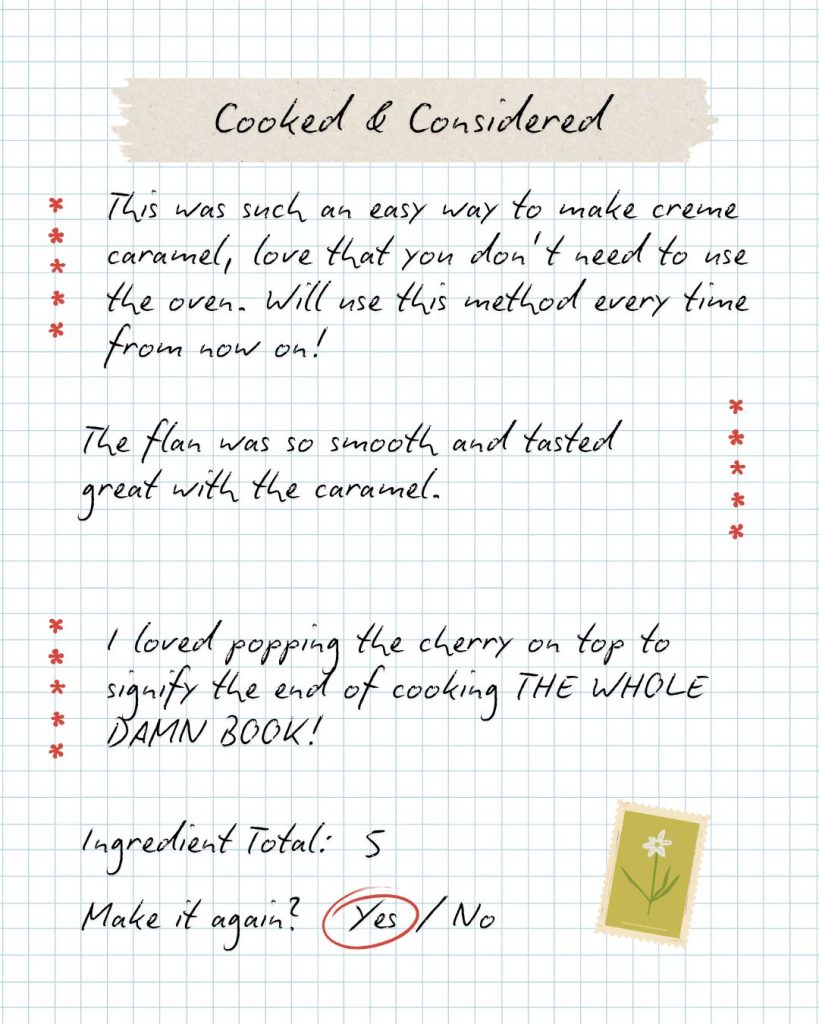 Cooked & Considered
This was such an easy way to make creme
caramel, love that you don't need to use
the oven. Will use this method every time
from now on!
The flan was so smooth and tasted
great with the caramel.
I loved popping the cherry on top to
signify the end of cooking THE WHOLE
DAMN BOOK!
Ingredient Total: 5
Make it again? Yes / No